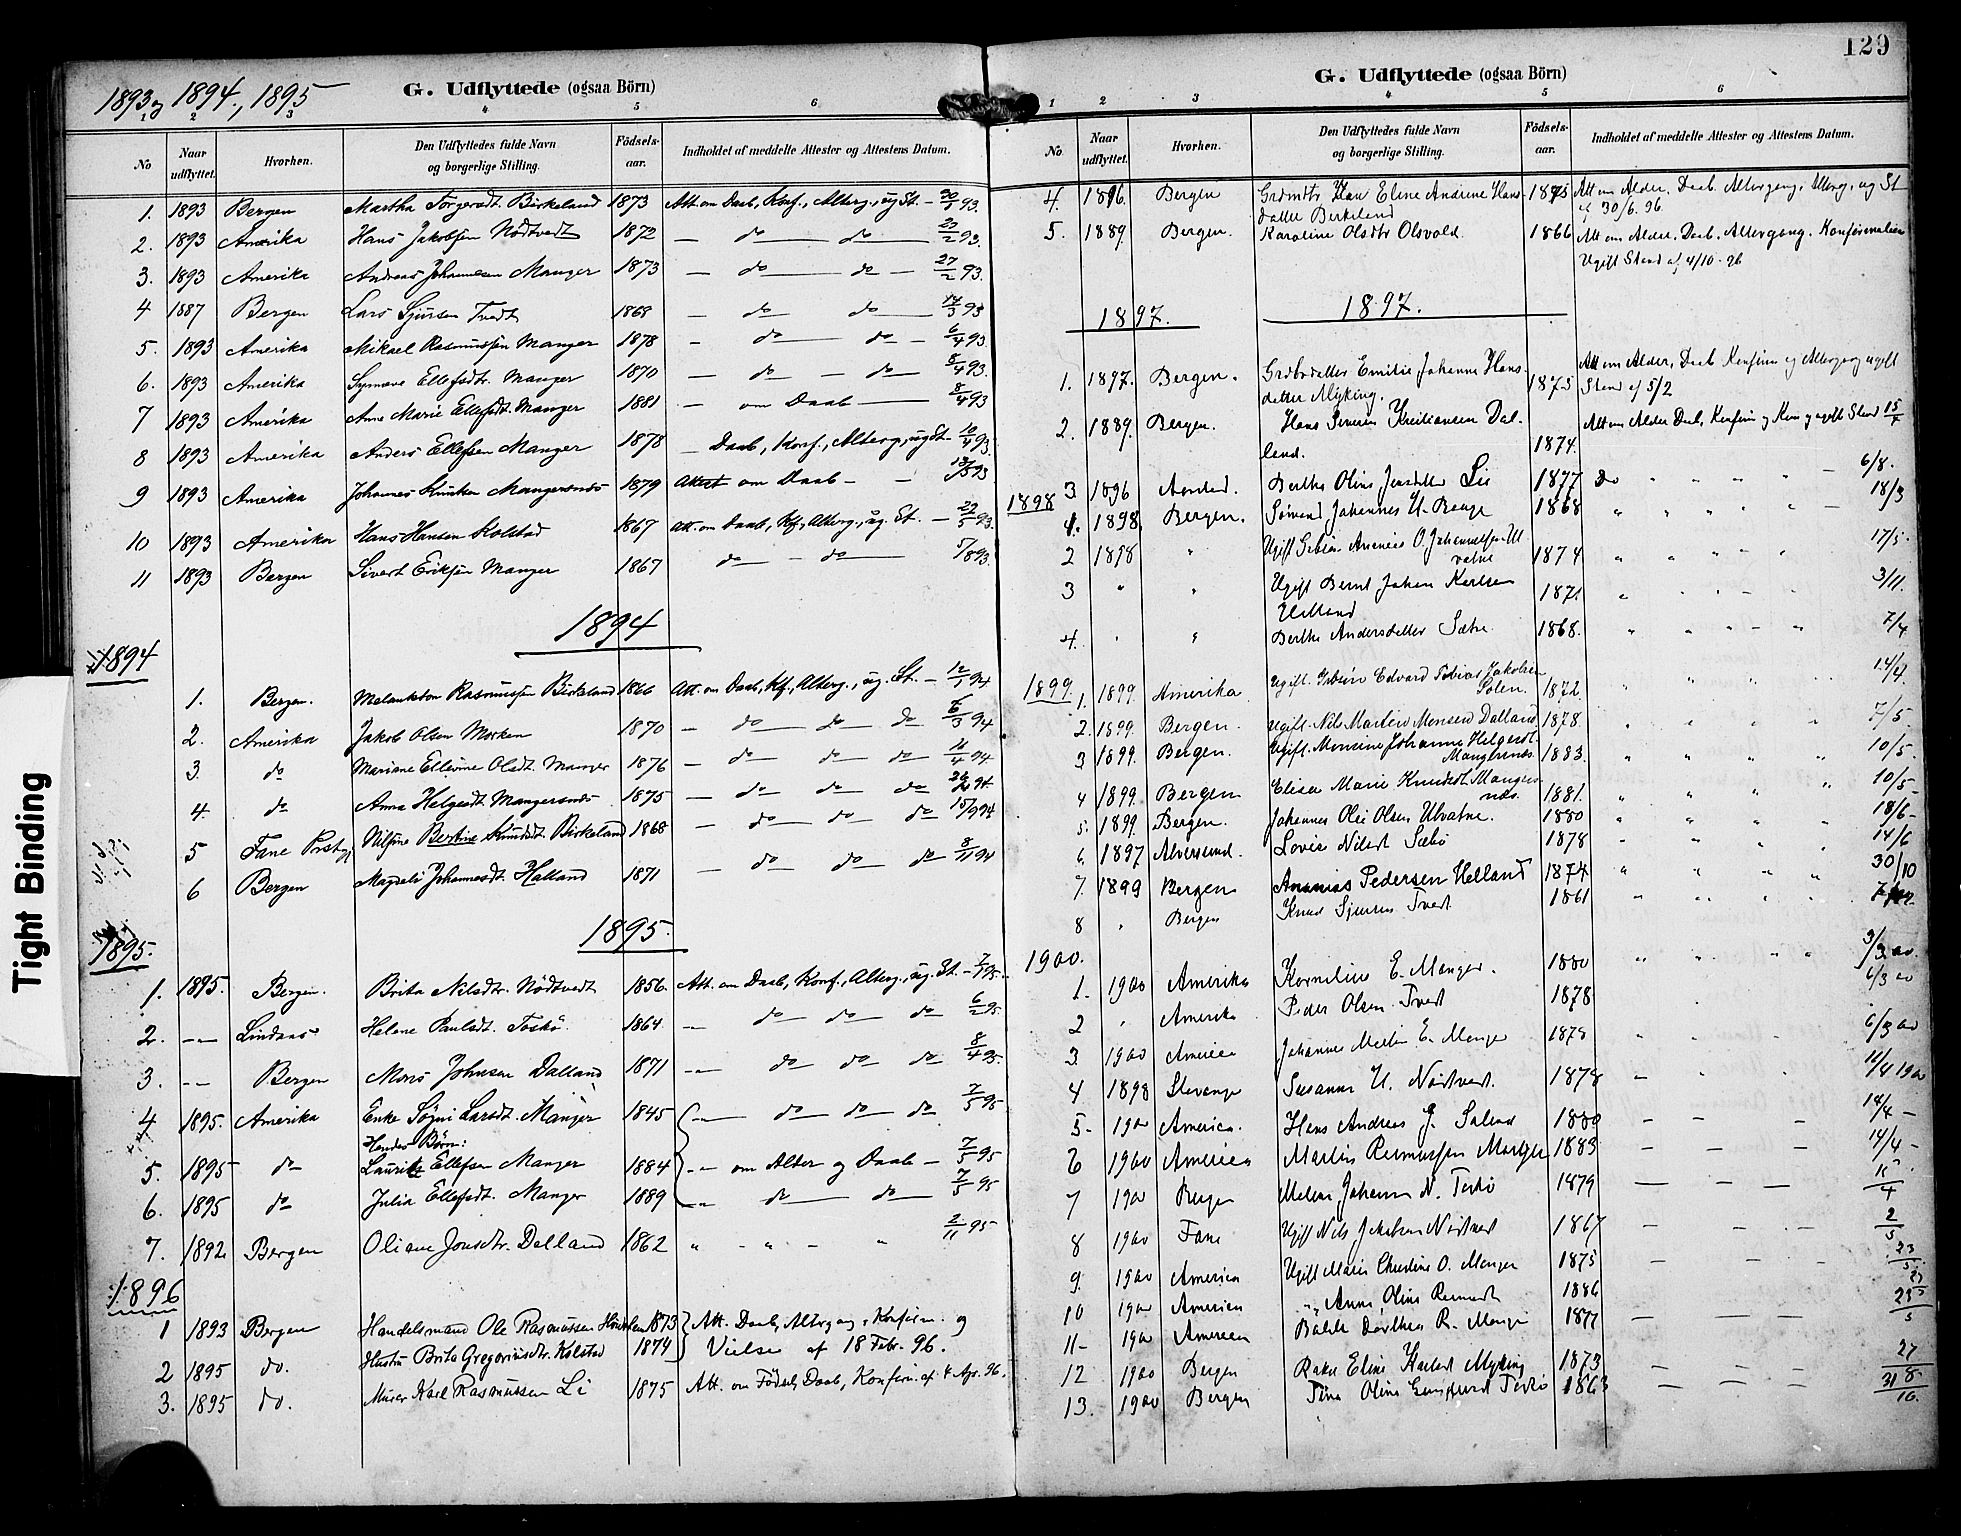 1893, 1894, 1895
G. Udflyttede (ogsaa Börn)
1 2 3 4 5 6
No Naar udflyttet. Hvorhen. Den Udflyttedes fulde Navn og borgerlige Stilling. Födsels-aar. Indholdet af meddelte Attester og Attestens Datum.
1. 1893 Bergen Martha Torgersdt. Birkeland 1873 Att. om Daab, Konf., Alterg., ug. St. – 93.
2. 1893 Amerika Hans Jakobsen Nödtvedt 1872 — do — do — 93.
3. 1893 Amerika Andreas Johannesen Manger 1873 — do — do — 27/2 93.
4 1887 Bergen Lars Sjursen Tvedt 1868 — do — do — 14/3 93
5. 1893 Amerika Mikael Rasmussen Manger 1878 — do — do — 6/4 93
6. 1893 Amerika Synneve Ellefsdtr. Manger 1870 — do — do — 8/4 93.
7 1893 Amerika Ane Marie Ellefsdt. Manger 1881 — om Daab — 8/4 93
8 1893 Amerika Anders Ellefsen Manger 1878 — Daab, Konf., Alterg., ug St. – 10/4 93.
9 1893 Amerika Johannes Knutsen Mangersnes 1879 Attest om Daab – – 93
10 1893 Amerika Hans Hansen Kolstad 1867 Att. om Daab, Kf., Alterg., ug. St. – 93.
11 1893 Bergen Sivert Eriksen Manger 1867 do — do — 5/8 93.
1894
1894
1. Bergen. Melankton Rasmussen Birkeland 1866 Att. om Daab, Kf., Alterg., ug. St. – 12/1 94
2. Amerika Jakob Olsen Morken 1870 — do — do — do 6/3 94
3. do Mariane Ellevine Olsdt. Manger 1876 — do — do — do 94
4. do Anna Helgesdt. Mangersnes 1875 — do — do — do 94
5 Fane Prstgj Nilsine Bertine Knutsdt. Birkeland 1868 — do — do — do 15/9 94
6 Bergen Magdeli Johannesdt. Halland 1871 — do — do — do 8/11 94
1895.
1895.
1. 1895. Bergen. Brita Nelsdtr. Nödtvedt 1856. Att. om Daab, Konf., Alterg., ug. St. – 7/1 95.
2. —"— Lindaas Helene Paulsdt. Toskö. 1864 —"— do — do — do 6/2 95.
3. —"— Bergen Mons Johnsen Dalland 1871 —"— do — do — do 8/4 95.
4 1895. Amerika Enke Sögni Larsdt. Manger 1845 —"— do — do — do 7/5 95
Hendes Börn:
5. 1895 do Laurits Ellefsen Manger 1884 —"— om Alder og Daab – 7/5 95
6. 1895 do Julia Ellefsdt. Manger 1889 —"— do — do — 7/5 95
7. 1892 Bergen Oliane Jonsdtr. Dalland 1862 " - " - " 2/11 95
1896
1 1893 Bergen Handelsmand Ole Rasmussen 1873 Att. Daab, Altergang, Konfirm. og
2 1895 do. Hustru Brita Gregoriusdtr. Kolstad 1874 Vielse af 18 Febr. 96.
3. 1895 do. Murer Karl Rasmussen Li 1875 Att. om Födsel, Daab, Konfirm. af 4 Apr. 96.
129
G. Udflyttede (ogsaa Börn)
1 2 3 4 5 6
No. Naar udflyttet. Hvorhen. Den Udflyttedes fulde Navn og borgerlige Stilling. Födsels-aar. Indholdet af meddelte Attester og Attestens Datum.
4. 1896. Bergen Elene Andrine Hans- 1875 Att om Alder, Daab. Altergang, og St
datter Birkeland af 30/6. 96.
5. 1889. Bergen. Karoline Olsdtr Olsvold. 1866 Att om Alder, Daab. Altergang. Konfirmation
Ugift Stand af 4/10 - 96
1897. 1897.
1. 1897. Bergen. Emilie Johanne Hans- 1875 Att om Alder, Daab Konfirm og Altergang ugift
datter Myking. Stand af 5/2
2. 1889. Bergen. Hans Severin Kristiansen Dal- Att om Alder Daab, Konfirm og ugift Stand 15/7
land. 1874.
3 1896 Berthe Oline Jensdatter Li 1877 Do " " " " – 6/8.
1898 1. 1898. Bergen. Johannes H. 1868 " " " " – 18/3
2 1898 " Ugift Ananias O. Johannessen 1874 " " " " " 17/5.
3 " " Ugift Bernt Johan Karlsen 1871. 3/11.
Helland
4. " " Berthe Andersdatter Sætre 1868. 7/4
1899. 1. 1899. Amerika Ugift. Edvard Tobias Jakobsen 1872. 14/4
Solem.
2. 1899. Bergen. Ugift. Nils Martin Monsen Dalland 1878. 7/5.
3 1899. Bergen. Ugift. Monsine Johanne Helgesdt. 1883. 10/5.
Mangersnes
4 1899. Bergen Elisa Marie Knudsdt. Mangers- 1881. 10/5-
nes.
5. 1899. Bergen. Johannes Olai Olsen Ulvatne. 1880 18/6-
6. 1897 Alversund. Lovise Nilsdt Sæbö 1878 14/6
7. 1899 Bergen Ananias Pedersen Helland 1874 30/10
8 " Bergen Knud Sjursen Tvedt 1861
1900.
1. 1900 Amerika Korneline E. Manger. 1880 3/3 00
2 " Amerika Peder Olsen Tvedt 1878 6/3 00
3 1900 America Johannes Martin E. Manger 1878 6/3 00
4 1898 Stavanger Susanna H. Nödtvedt. 1878 4/4 1900
5- 1900 America. Hans Andreas J. 1880 14/4 –
6 1900 America Martin Rasmussen Manger 1883 14/4 –
7 1900 Bergen Johanna N. Toskö 1879
8 1900 Fane Ugift Nils Jakobsen Nödtvedt 1867 2/5
9. 1900 America Ugift Marie Christine O. Manger 1875 23/5.
10 1900 America " Anna Oline 1886
11- 1900 America Dorthea R. Manger 1877
12 1900 Bergen Eline Myking 1873 27/8.
13. 1900 Bergen Oline Toskö 1863 31/10.
Tight Binding